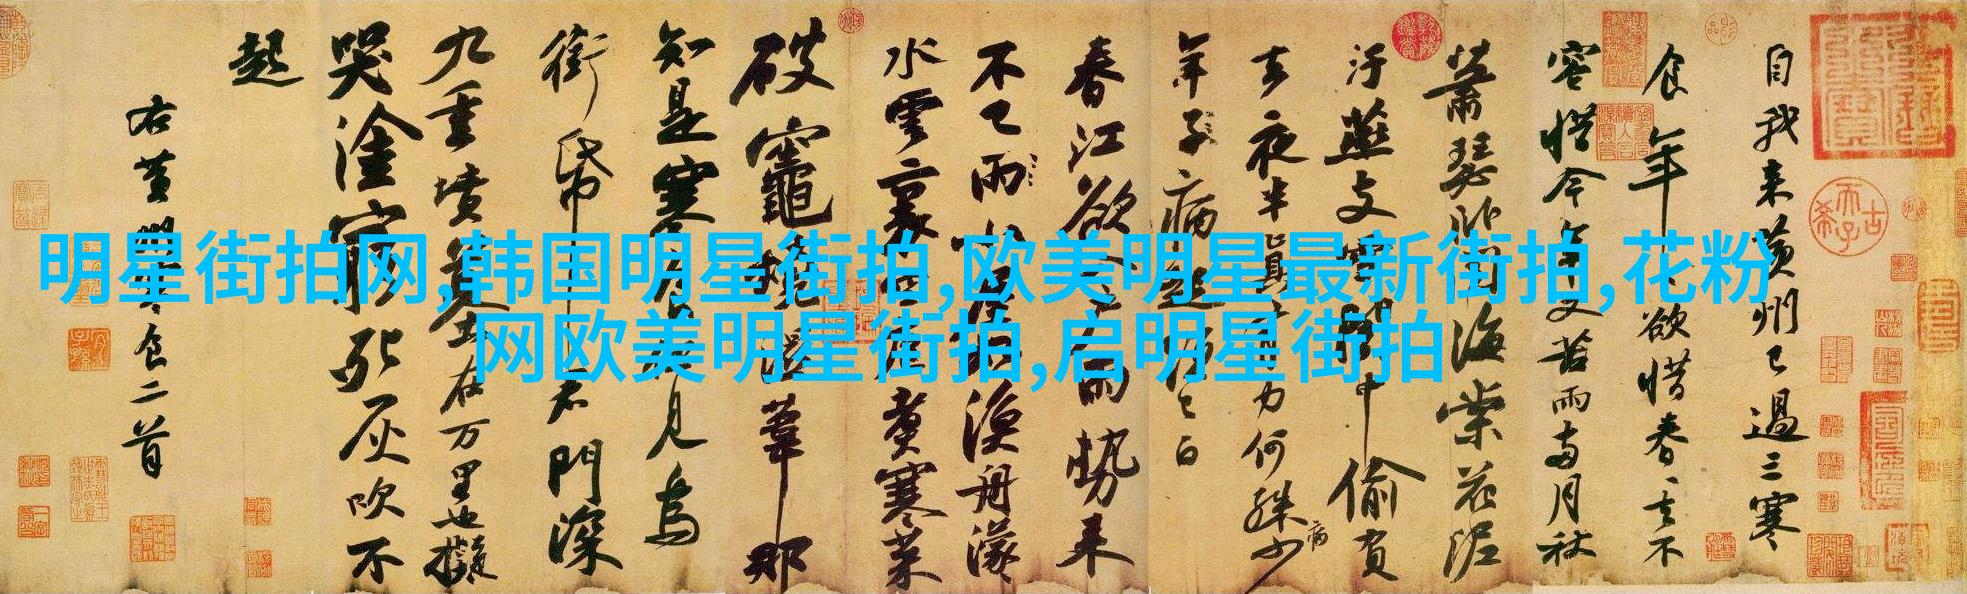 明星街拍网,韩国明星街拍,欧美明星最新街拍,花粉
网欧美明星街拍,启明星街拍
自我来黄州已過三寒
食年〻欲惜春〻去不
容惜今年又苦雨兩月秋
蕭瑟卧聞海棠花泥
汙燕支雪闇中偷負
去夜半真有力何殊少
病
年子病起頭已白
春江欲入戶雨勢来
不已雨小屋如漁舟濛
水雲裏空庖煮寒菜
破竈燒濕葦那
知是寒食但見烏
銜帋君門深
九重墳墓在万里也擬
哭塗窮死灰吹不
起
右黄州寒食二首